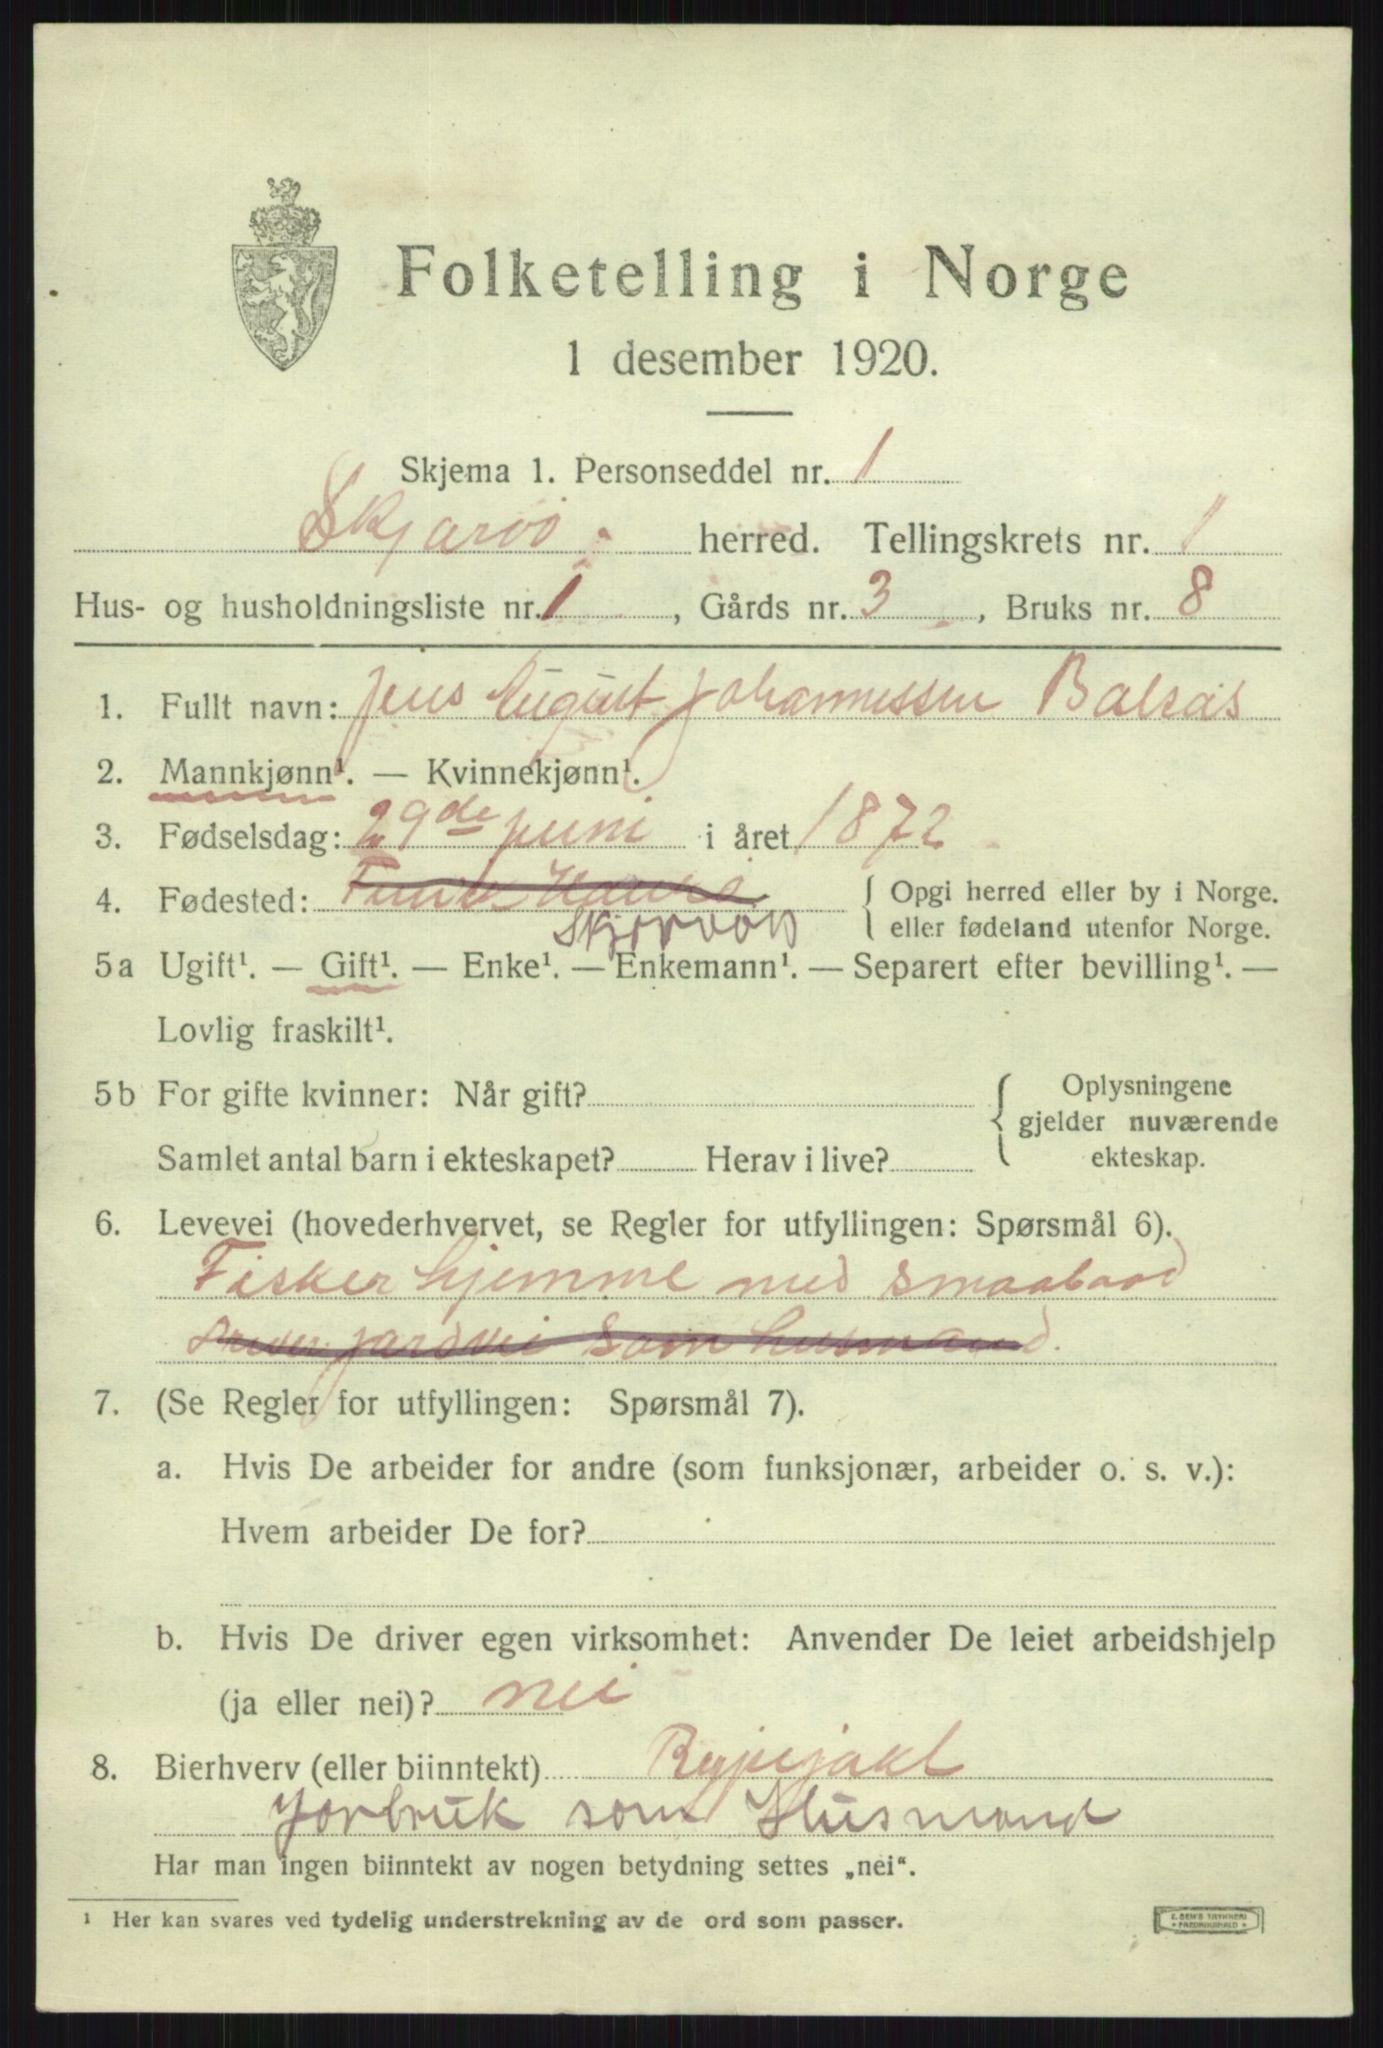 Folketelling i Norge
1 desember 1920.
Skjema 1. Personseddel nr. 1
Skjærvö herred. Tellingskrets nr. 1
Hus- og husholdningsliste nr. 1, Gårds nr. 3, Bruks nr. 8
1. Fullt navn: Jens August Johannessen Balsas
2. Mannkjønn¹. — Kvinnekjønn¹.
3. Fødselsdag: 29de juni i året 1872
4. Fødested: { Opgi herred eller by i Norge.
Skjervøy { eller fødeland utenfor Norge.
5a Ugift¹. — Gift¹. — Enke¹. — Enkemann¹. — Separert efter bevilling¹. —
Lovlig fraskilt¹.
5b For gifte kvinner: Når gift? { Oplysningene
gjelder nuværende
Samlet antal barn i ekteskapet? Herav i live? ekteskap.
6. Levevei (hovederhvervet, se Regler for utfyllingen: Spørsmål 6).
Fisker hjemme med smaabaad
jardvei som husmand.
7. (Se Regler for utfyllingen: Spørsmål 7).
a. Hvis De arbeider for andre (som funksjonær, arbeider o. s. v.):
Hvem arbeider De for?
b. Hvis De driver egen virksomhet: Anvender De leiet arbeidshjelp
(ja eller nei)? nei
8. Bierhverv (eller biinntekt) Rypejakt
Jorbruk som Husmand
Har man ingen biinntekt av nogen betydning settes „nei“.
¹ Her kan svares ved tydelig understrekning av de ord som passer.
E. SEM'S TRYKKERI
FREDRIKSHALD